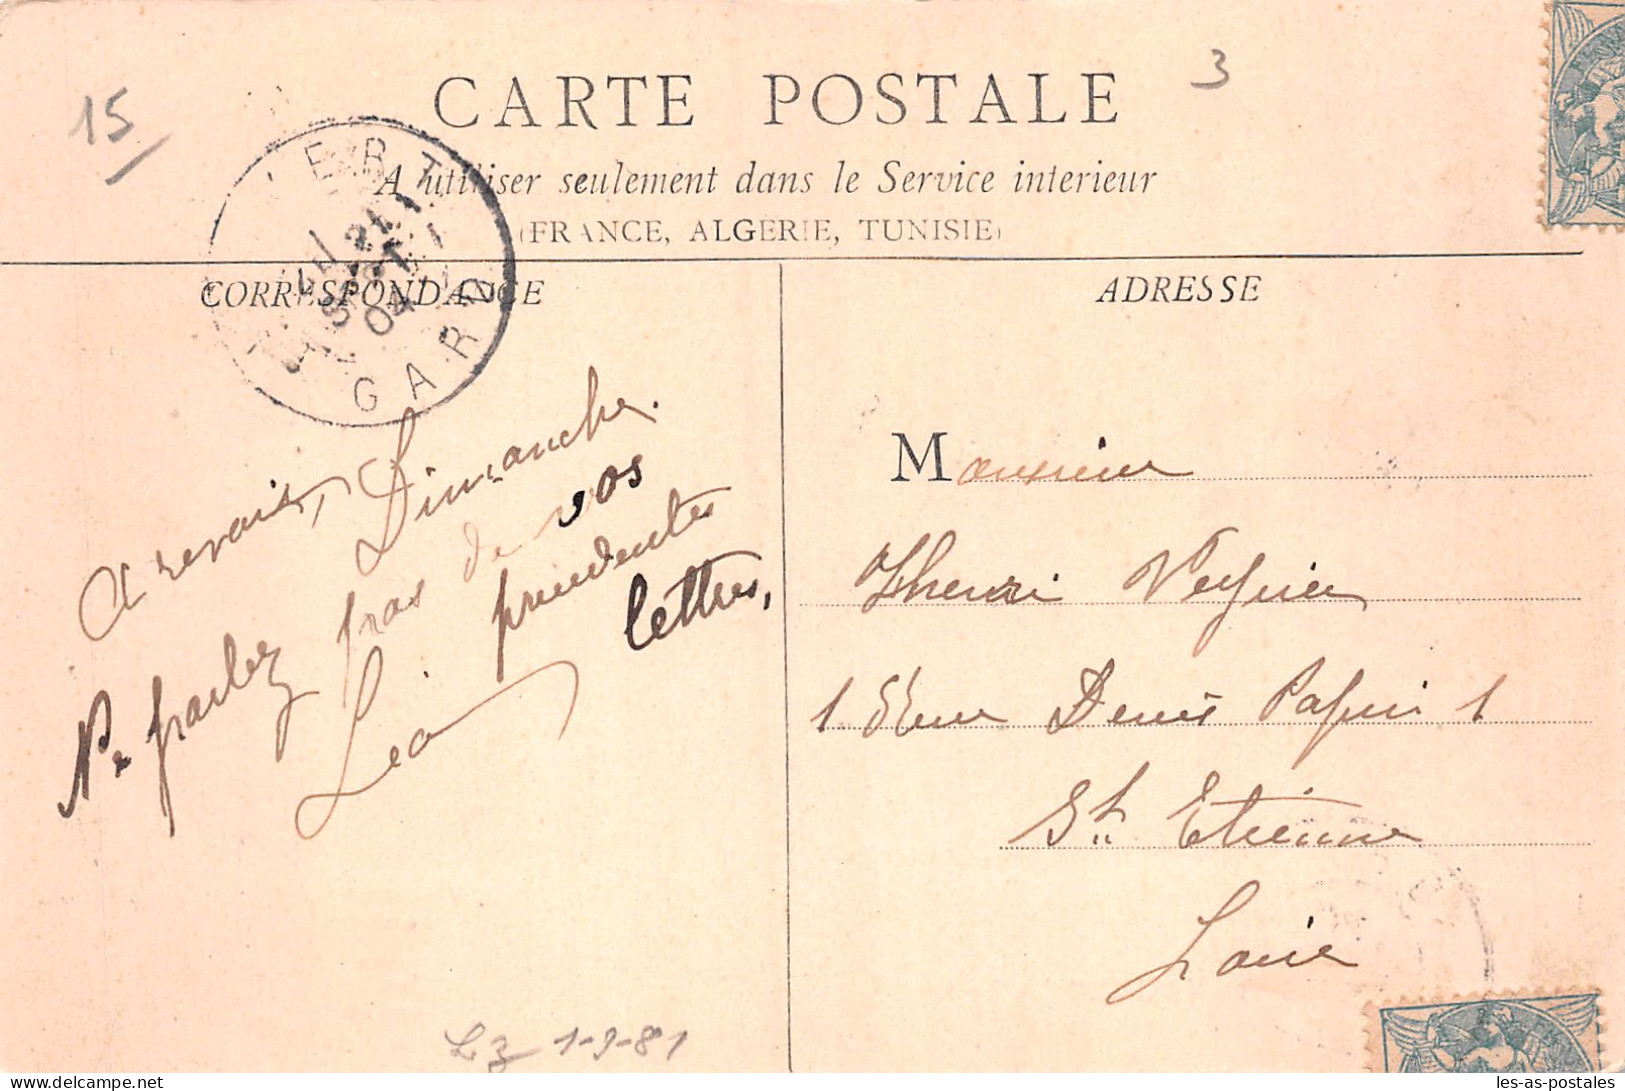 15
3
CARTE POSTALE
A utiliser seulement dans le Service interieur
(FRANCE, ALGERIE, TUNISIE)
CORRESPONDANCE
ADRESSE
GARD
04
A revoir, Dimanche.
Ne parlez pas de vos
prudentes
lettres,
Léon
Monsieur
Henri Veyrier
1 Rue Denis Papin 1
St. Etienne
Loire
1-9-81
les-as-postales